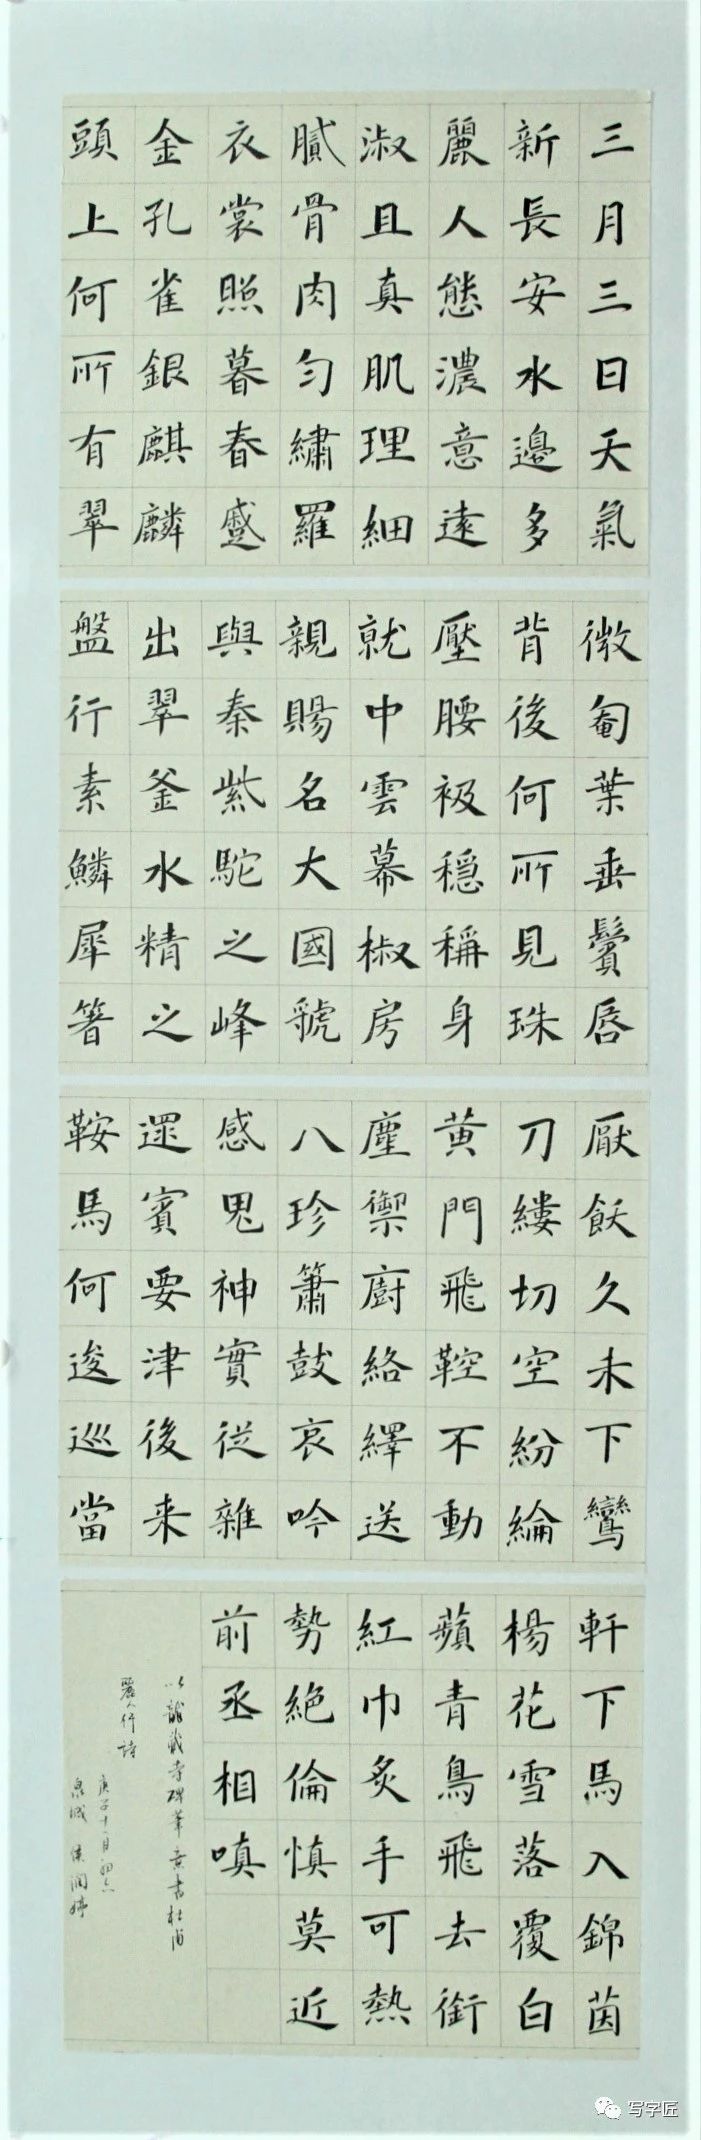 三月三日天氣
新長安水邊多
麗人態濃意遠
淑且真肌理細
膩骨肉勻繡羅
衣裳照暮春蹙
金孔雀銀麒麟
頭上何所有翠
微㔩葉垂鬢唇
背後何所見珠
壓腰衱穩稱身
就中雲幕椒房
親賜名大國虢
與秦紫駝之峰
出翠釜水精之
盤行素鱗犀箸
厭飫久未下鸞
刀縷切空紛綸
黃門飛鞚不動
塵御廚絡繹送
八珍簫鼓哀吟
感鬼神實從雜
遝賓要津後来
鞍馬何逡巡當
軒下馬入錦茵
楊花雪落覆白
蘋青鳥飛去銜
紅巾炙手可熱
勢絕倫慎莫近
前丞相嗔
以龍藏寺碑筆意書杜甫
麗人行詩
庚子十一月初六
泉城 侯潤婷
写字匠